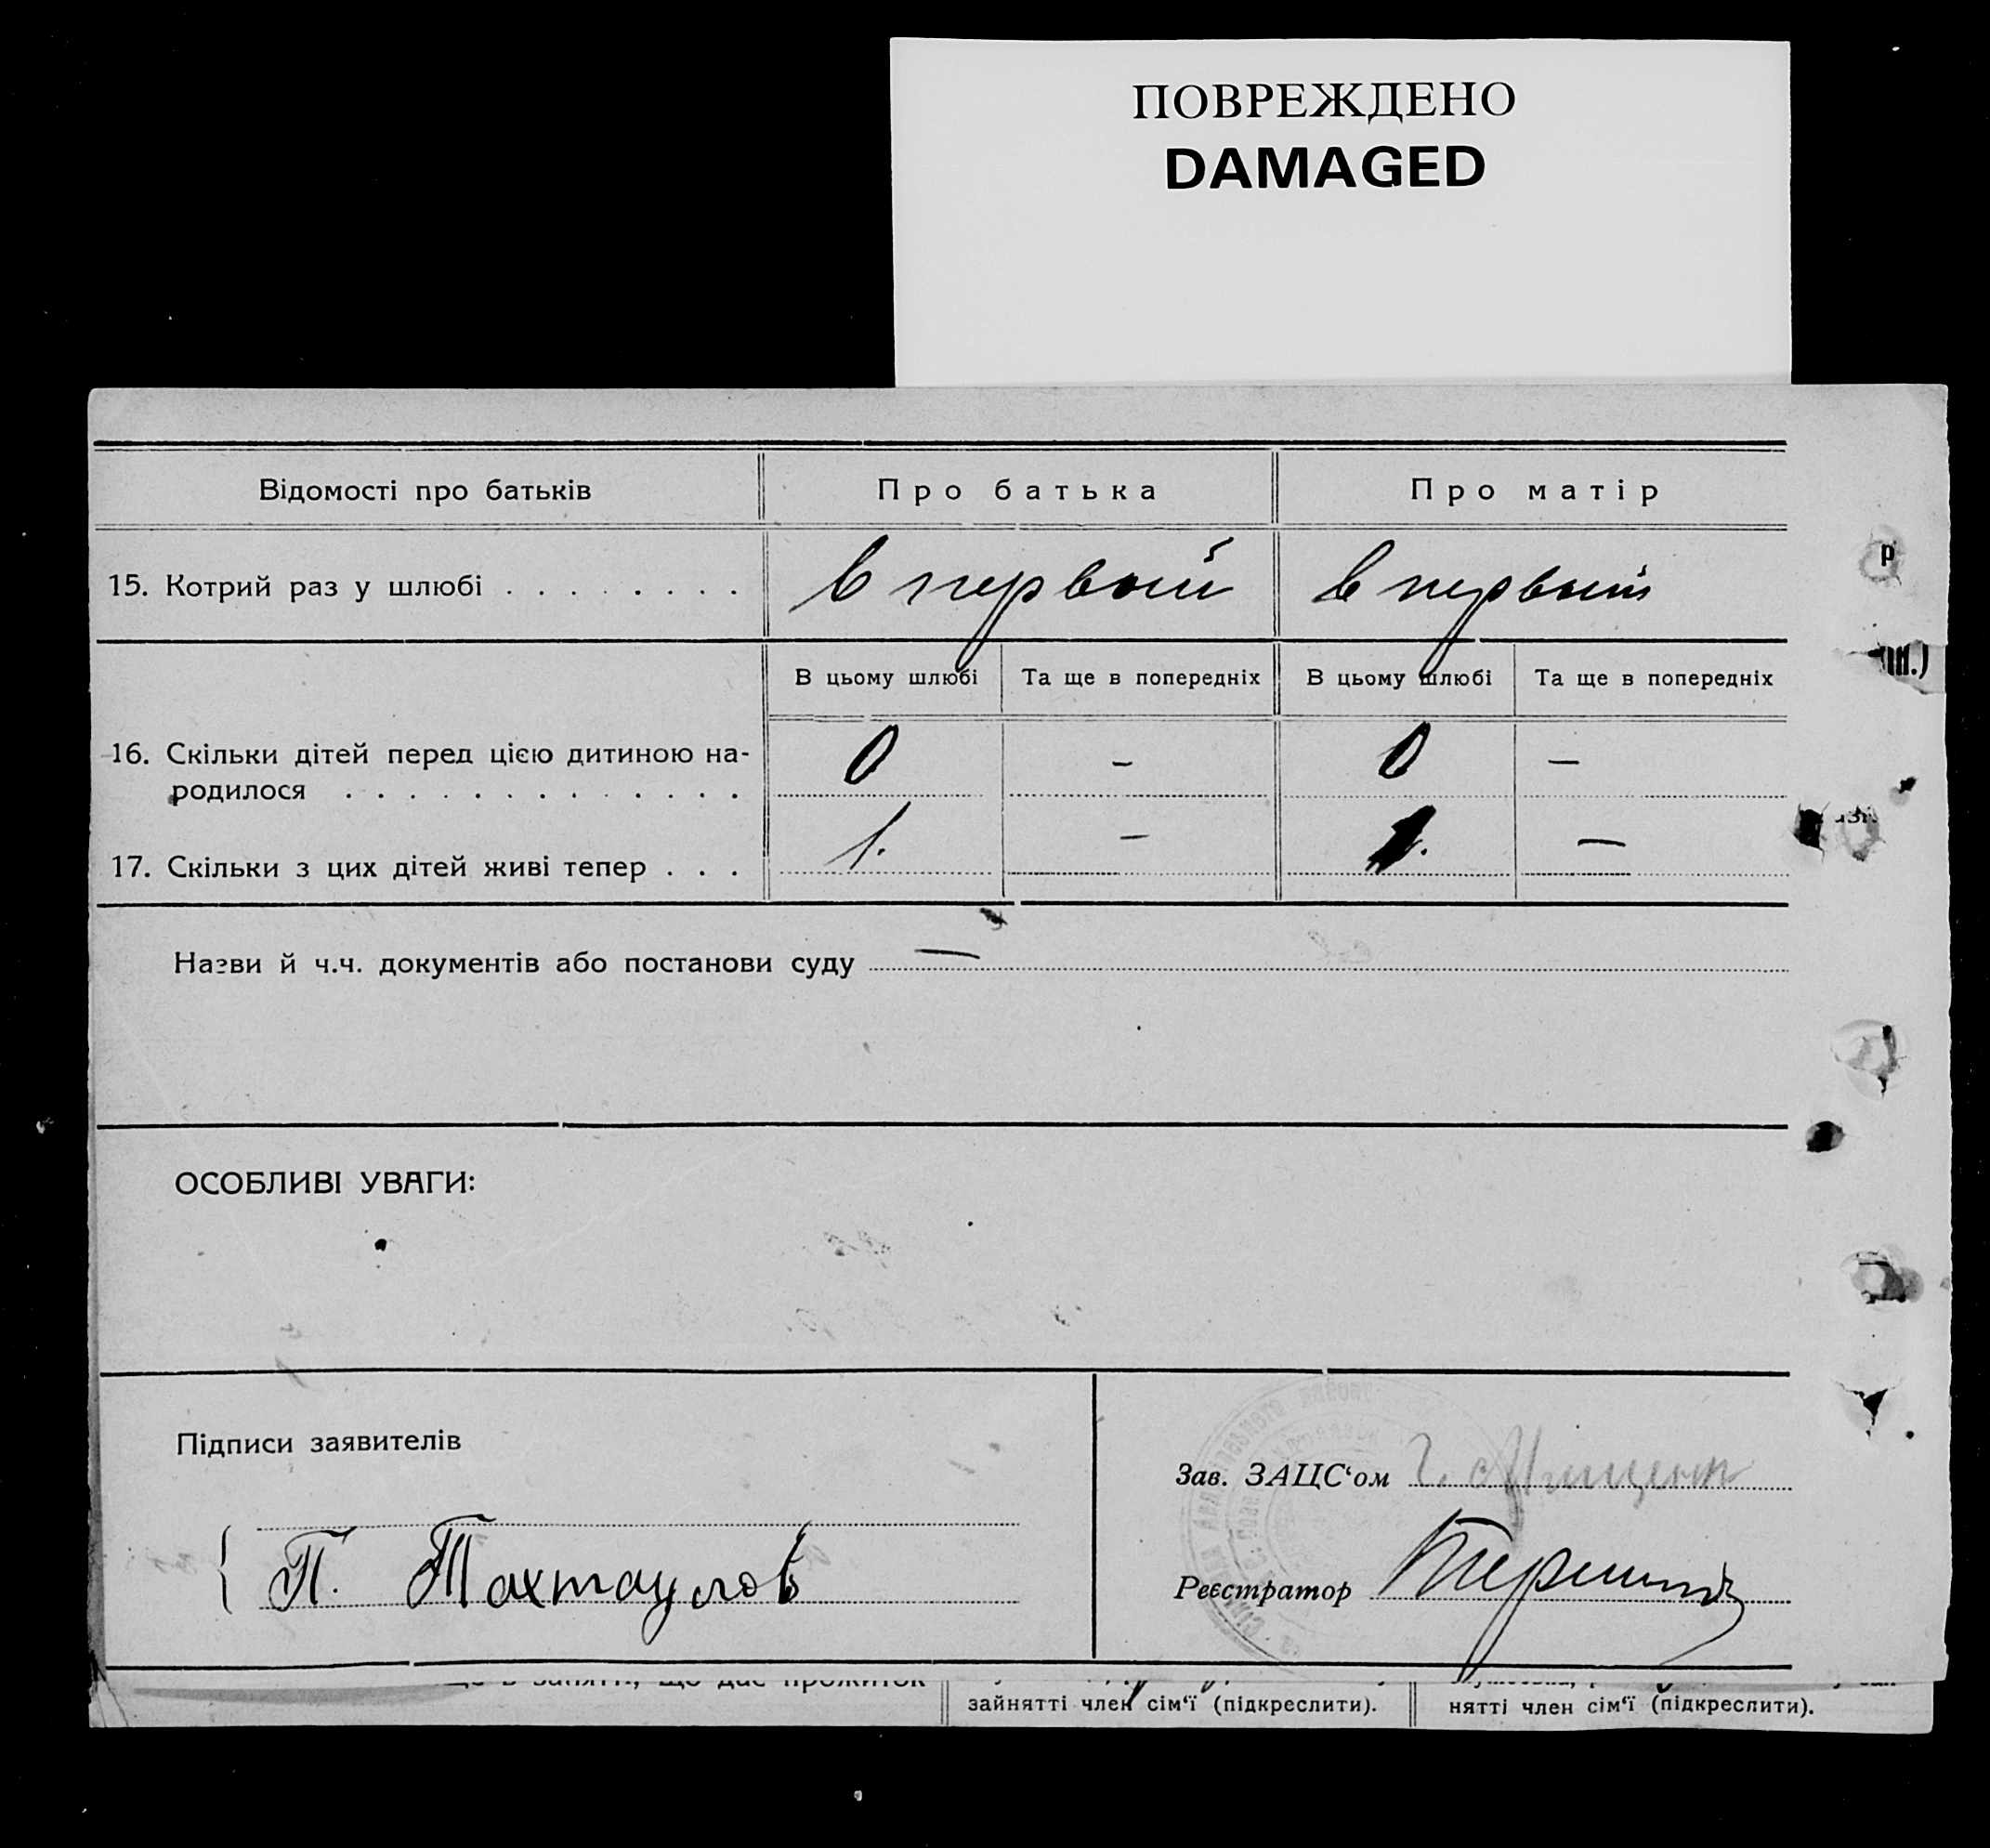 ПОВРЕЖДЕНО
DAMAGED
Відомості про батьків
Про батька
Про матір
15. Котрий раз у шлюбі . . . . . . . .
в первый
в первый
В цьому шлюбі
Та ще в попередніх
В цьому шлюбі
Та ще в попередніх
16. Скільки дітей перед цією дитиною на-
родилося . . . . . . . . . . . . .
0
-
0
-
17. Скільки з цих дітей живі тепер . . .
1.
-
1.
-
Назви й ч.ч. документів або постанови суду —
ОСОБЛИВІ УВАГИ:
Підписи заявителів
П. Тахтаулов
Зав. ЗАЦС‘ом
Реєстратор
що дає прожиток
зайнятті член сім‘ї (підкреслити).
нятті член сім‘ї (підкреслити).